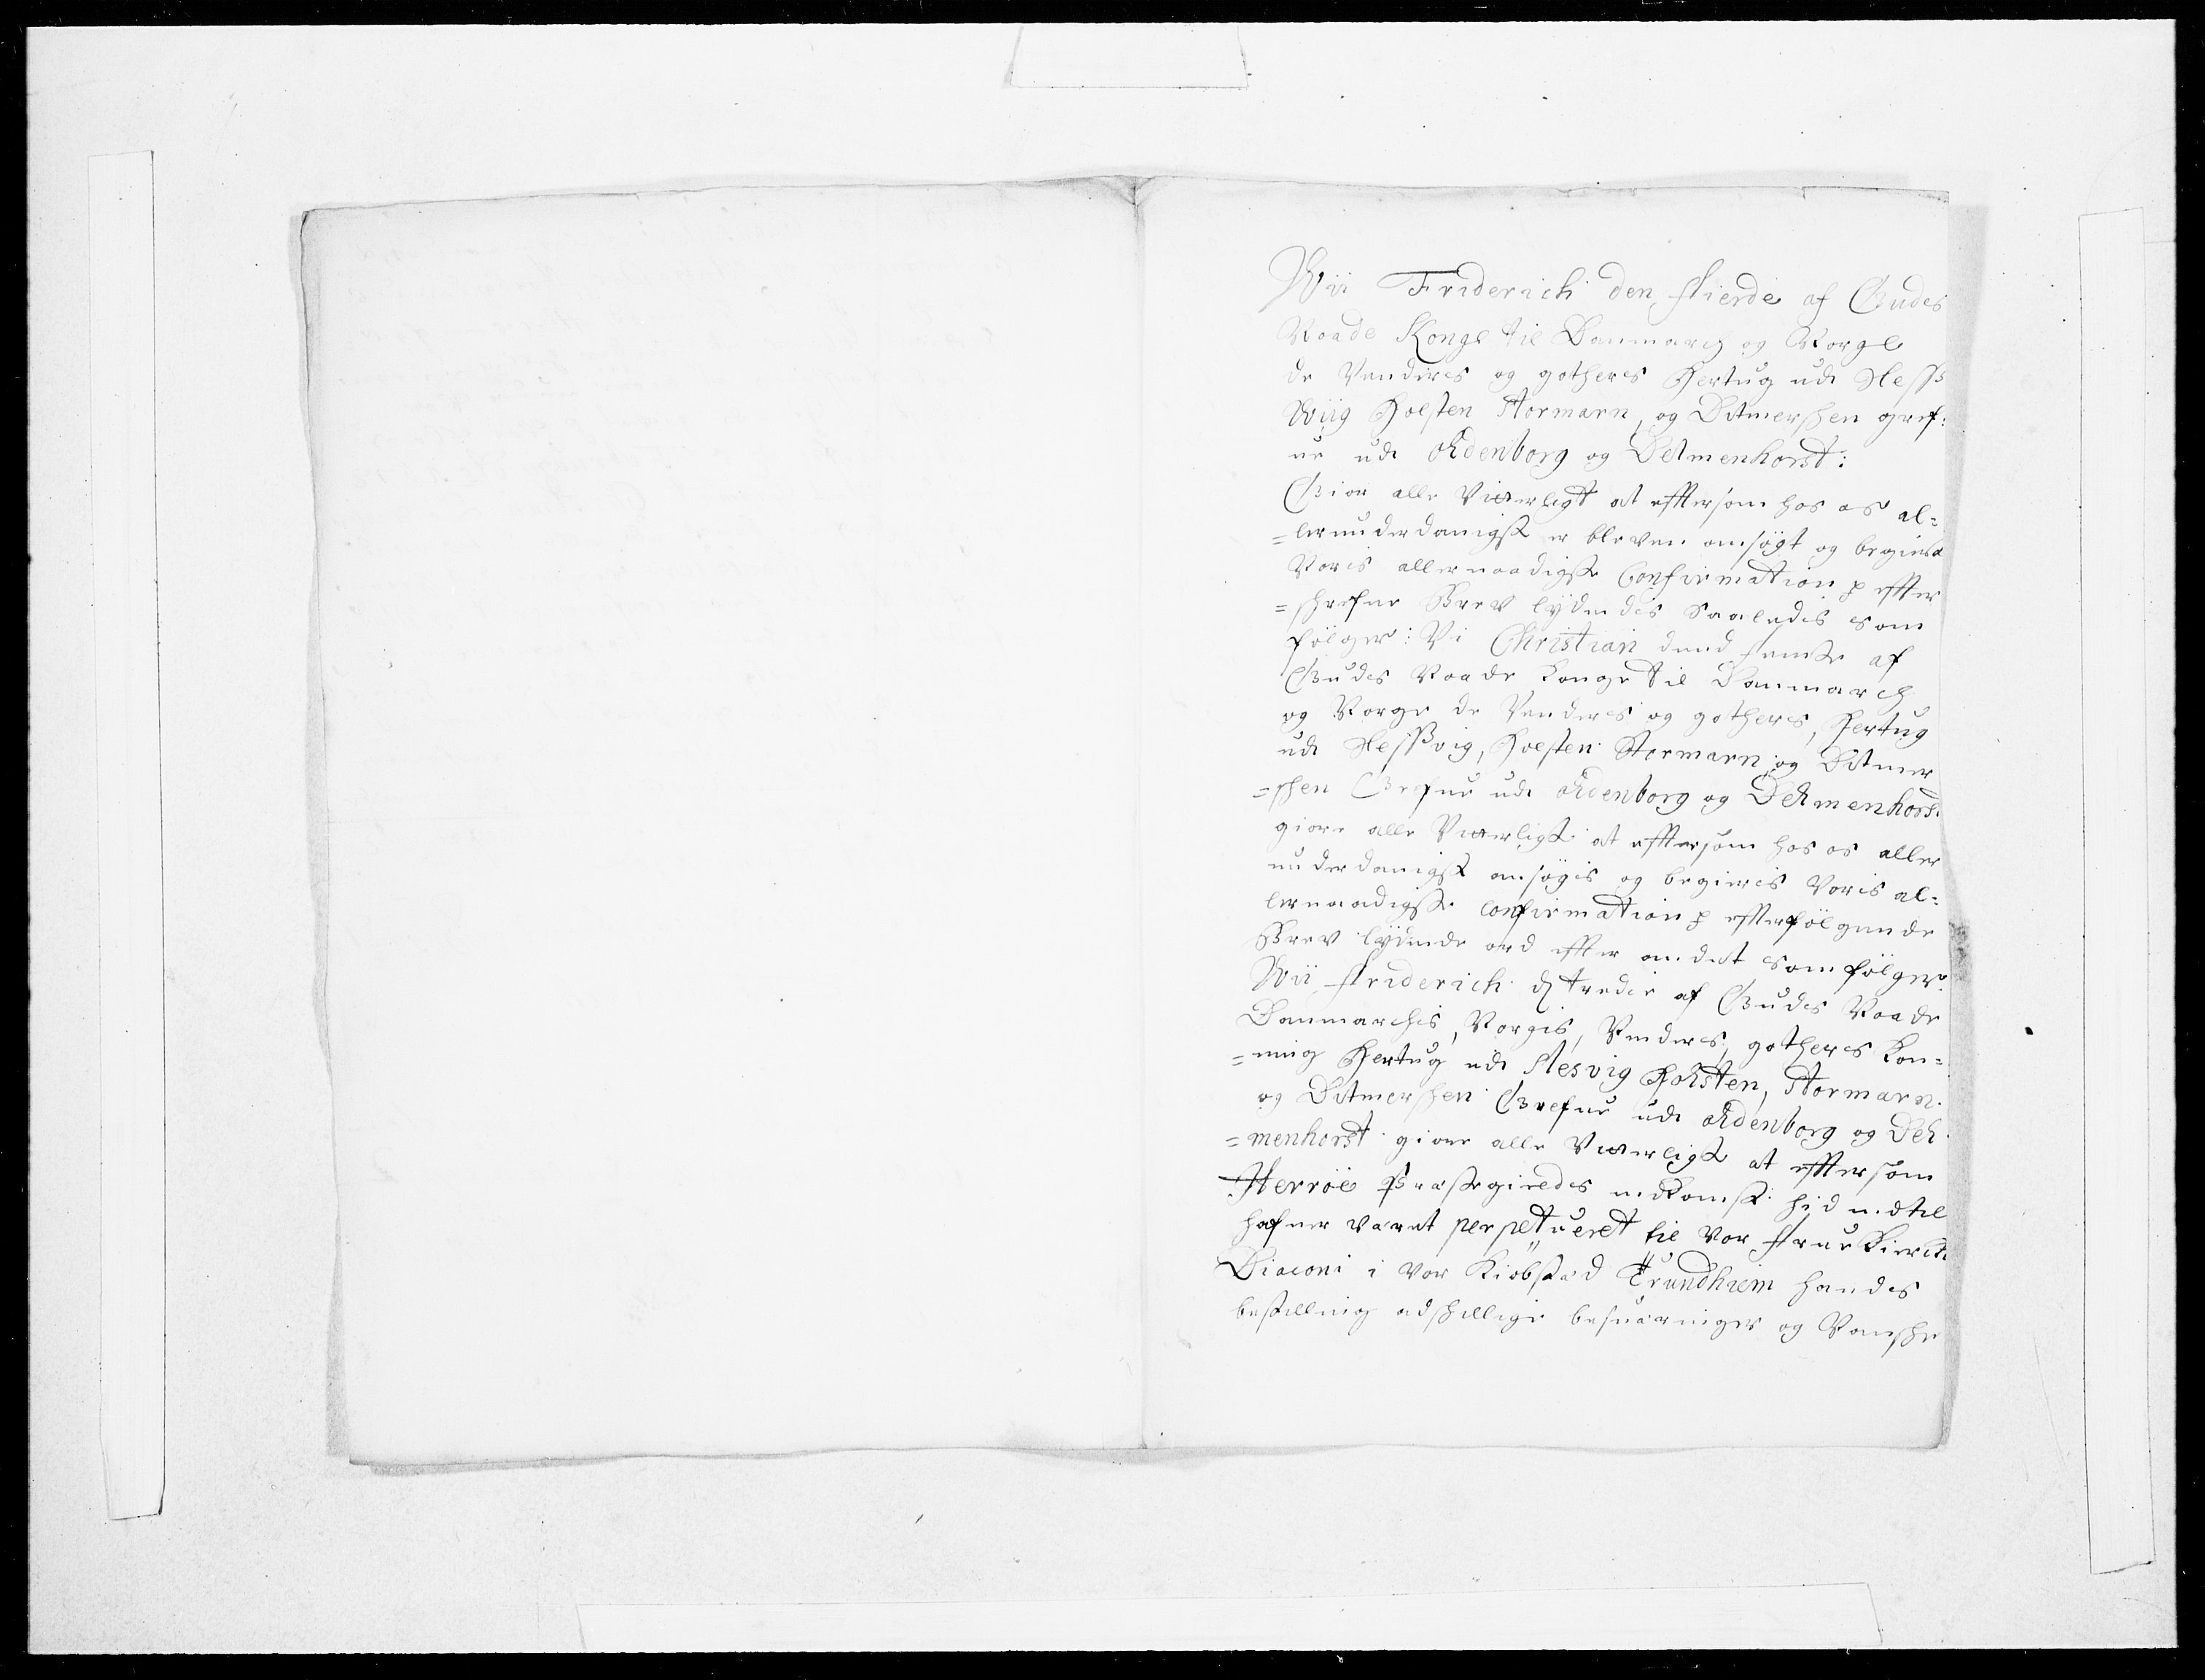 Wii Friderich den fierde af Gudes
Naade Konge til Danmarch og Norge
de Venders og gothers Hertug udi Sless
wiig Holsten Stormarn, og Ditmershen gref:
ue udi oldenborg og Delmenhorst:
Giør alle Vitterligt at effersom hos os al=
=lerunderdanigst er bleven ansøgt og begiert
Voris allernaadigste Confirmation paa effter
=shrefne Brev lydendis Saaledis som
følger: Vi Christian dend femte af
Gudes Naade Konge til Danmarch
og Norge de Venders og gothers, Hertug
udi Slessvig, Holsten Stormarn og Ditmer
=shen Grefue udi oldenborg og Delmenhorst
giøre alle Vitterligt at effersom hos os aller
underdanigst ansøgis og begieris Voris al=
lernaadigste Confirmation paa effterfølgende
Brev lydende ord effter andet som følger.
Wii Friderich d. tredie af Gudes Naade
Danmarchis, Norgis, Venders, gothers Kon=
=ning Hertug udi Slesvig Holsten, Stormarn
og Ditmershen Grefue udi oldenborg og Del
=menhorst giøre alle Vitterligt at efftersom
Sterröe Præstegieldes indkomst hid indtil
hafuer været perpetueret til vor frue Kirckis
Diaconi i vor Kiøbstæd Trundhiem handes
bestilling adshillige besuæringer og Vanshe